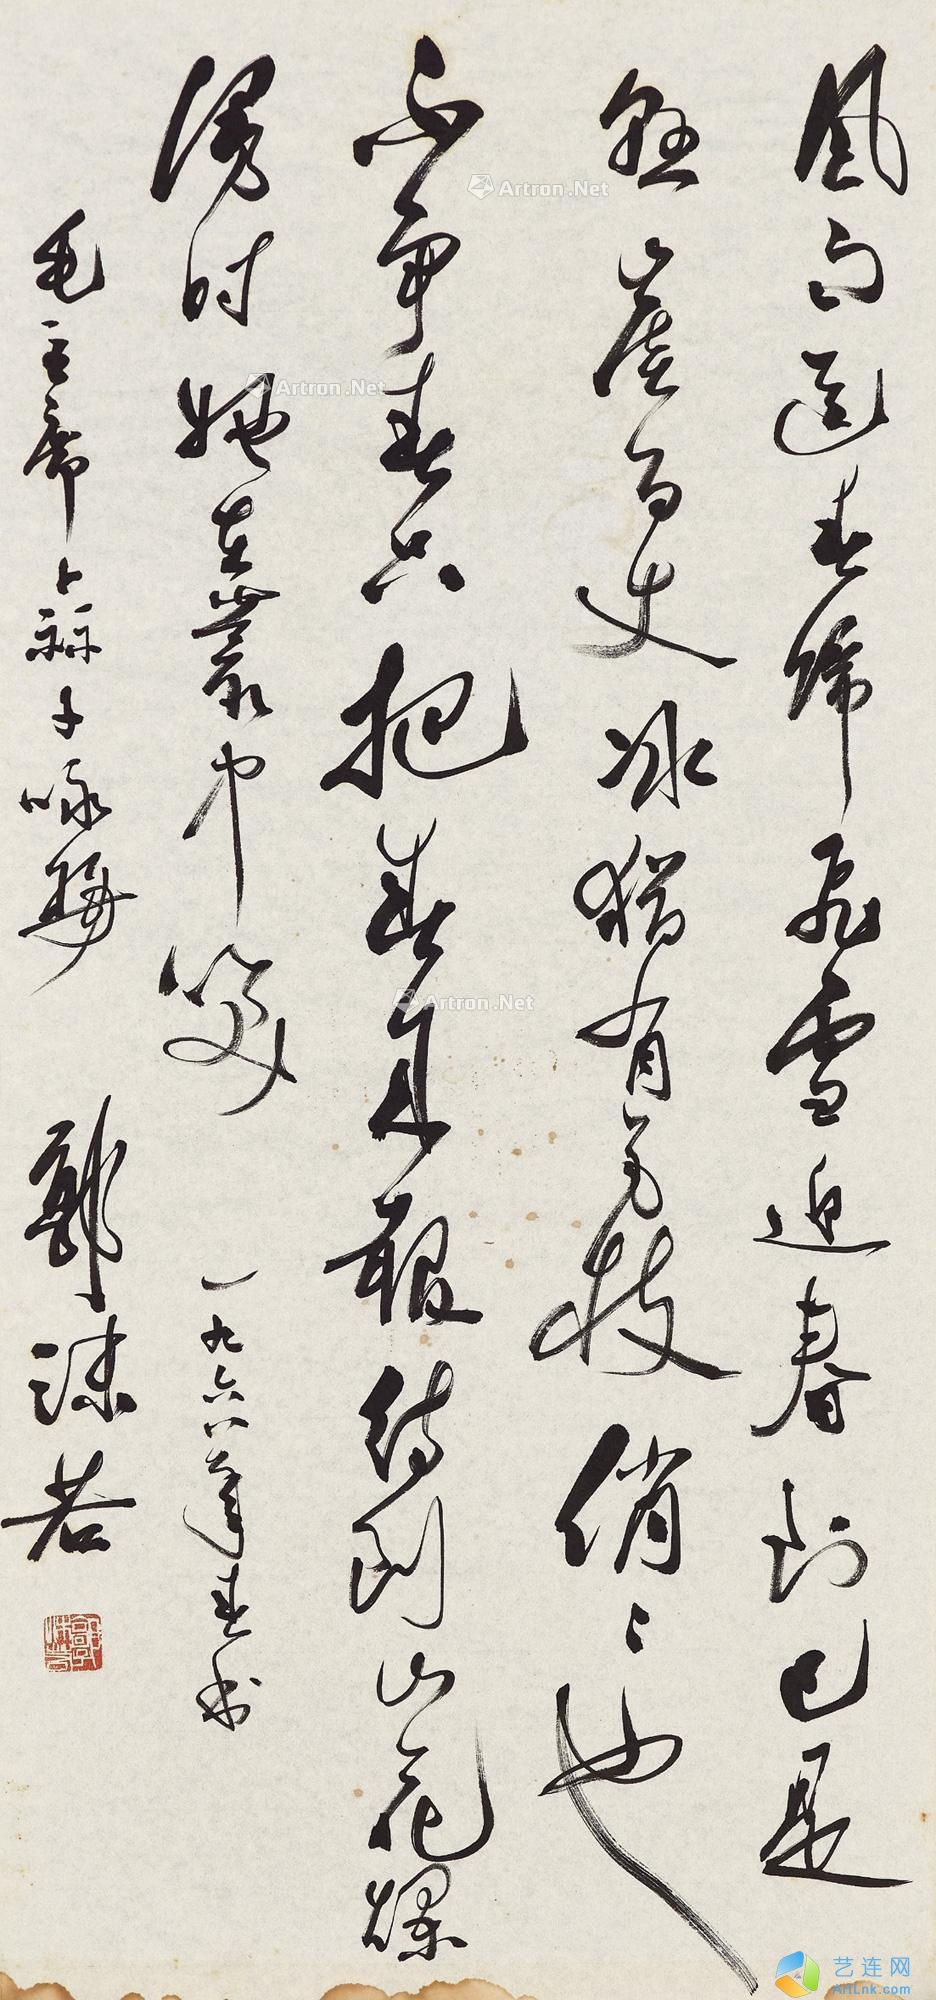 風雨送春歸飛雪迎春到已是
懸崖百丈冰猶有花枝俏〻也
不爭春只把春來報待到山花爛
漫时她在叢中笑 一九六八年春书
毛主席卜祘子咏梅 郭沫若
郭沫若
Artron.Net
Artron.Net
Artron.Net
艺连网
ArtLnk.com